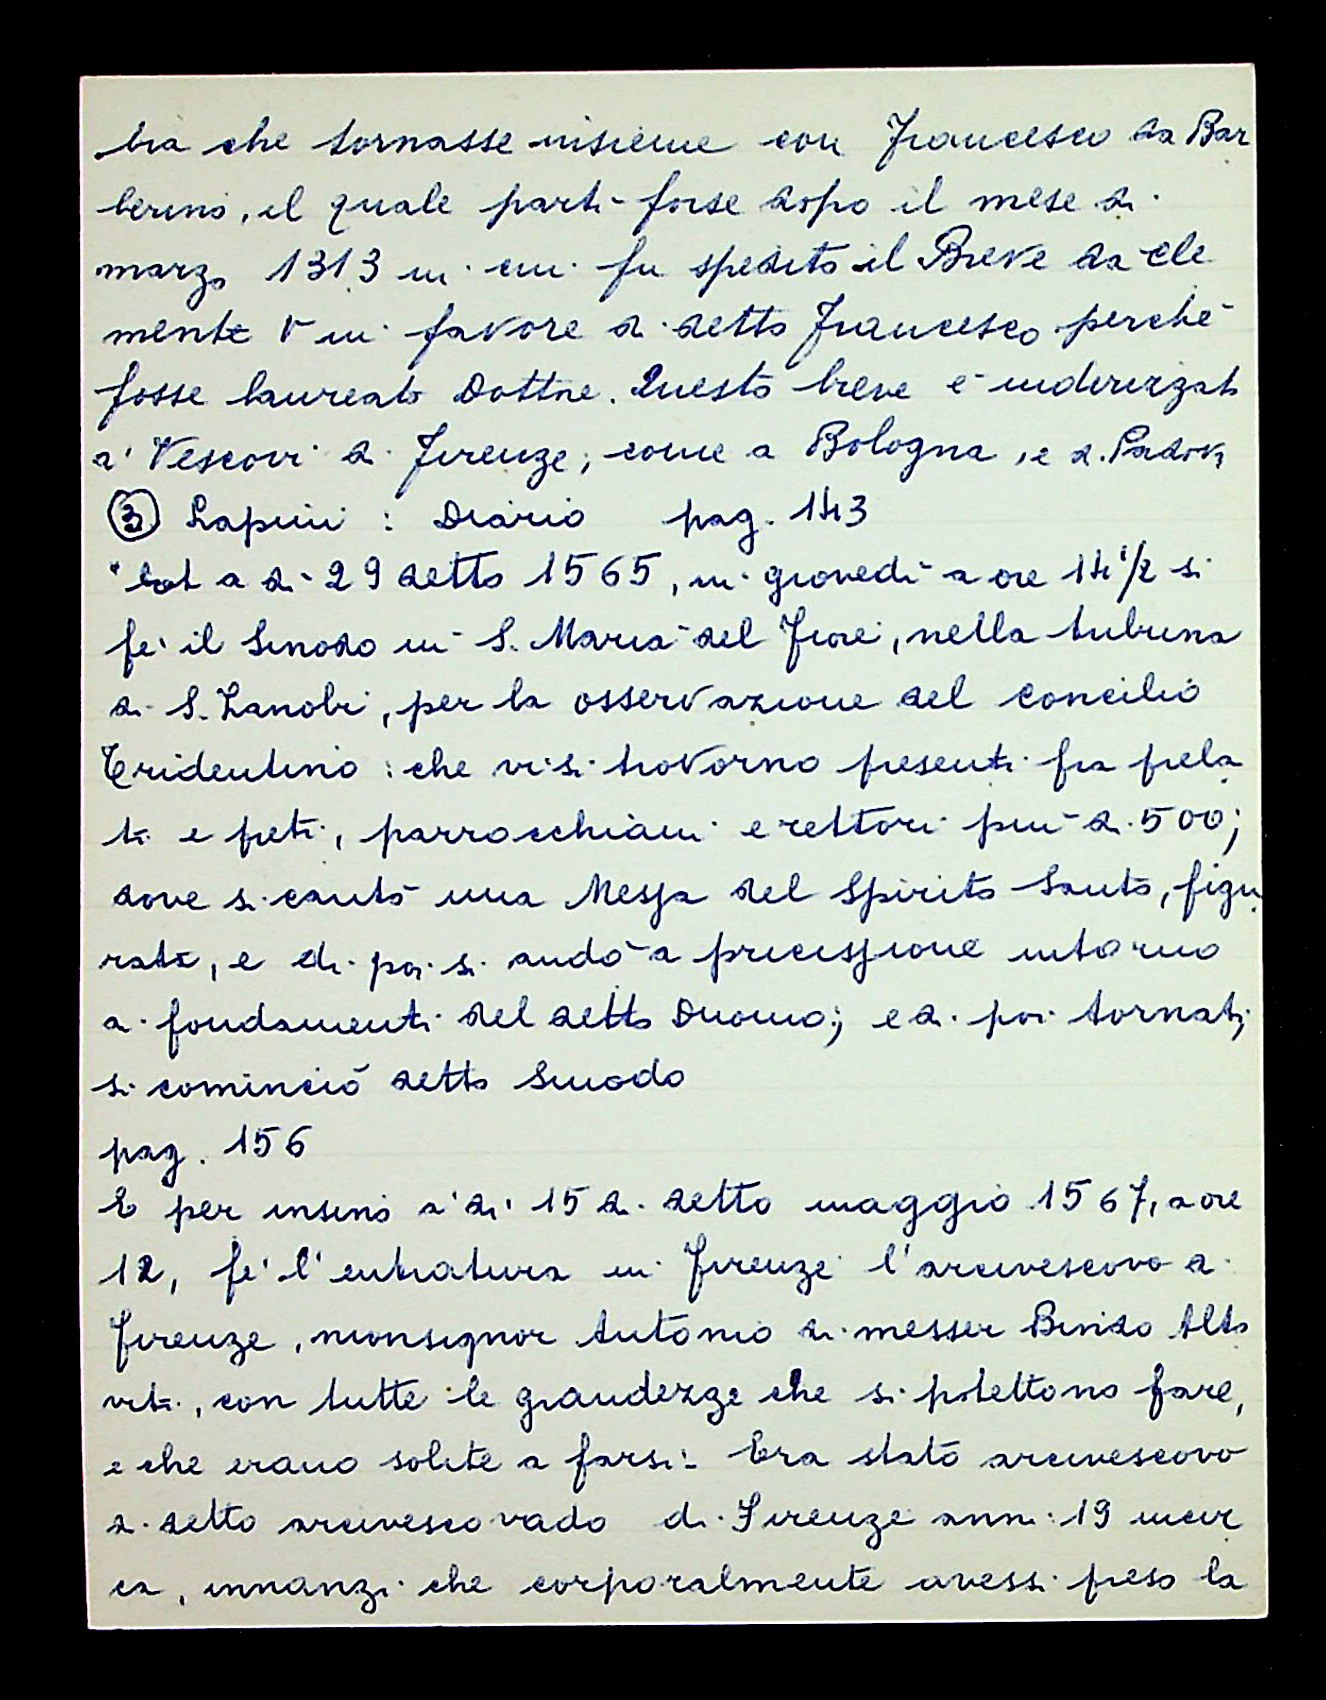 bra che tornasse insieme con Francesco da Bar
berino, il quale partì forse dopo il mese di
marzo 1313 in cui fu spedito il Breve da Cle
mente V in favore di detto Francesco perchè
fosse laureato Dottore. Questo breve è inderizzato
a' Vescovi di Firenze, come a Bologna, e di Padova
(3) Lapini : Diario pag. 143
"Et a dì 29 detto 1565, in giovedì a ore 14 1/2 si
fe' il Sinodo in S. Maria del Fiore, nella tribuna
di S. Zanobi, per la osservazione del Concilio
Tridentino : che vi si trovorno presenti fra prela
ti e preti, parrocchiani e rettori più di 500;
dove si cantò una Messa del Spirito Santo, figu
rata, e di poi si andò a precissione intorno
a fondamenti del detto Duomo; e di poi tornati,
si cominciò detto Sinodo
pag. 156
E per insino a' di' 15 di detto maggio 1567, a ore
12, fe' l'entratura in Firenze l'arcivescovo di
Firenze, monsignor Antonio di messer Bindo Alto
viti, con tutte le grandezze che si potettono fare,
e che erano solite a farsi. Era stato arcivescovo
di detto arcivescovado di Firenze anni 19 incir
ca, innanzi che corporalmente avessi preso la